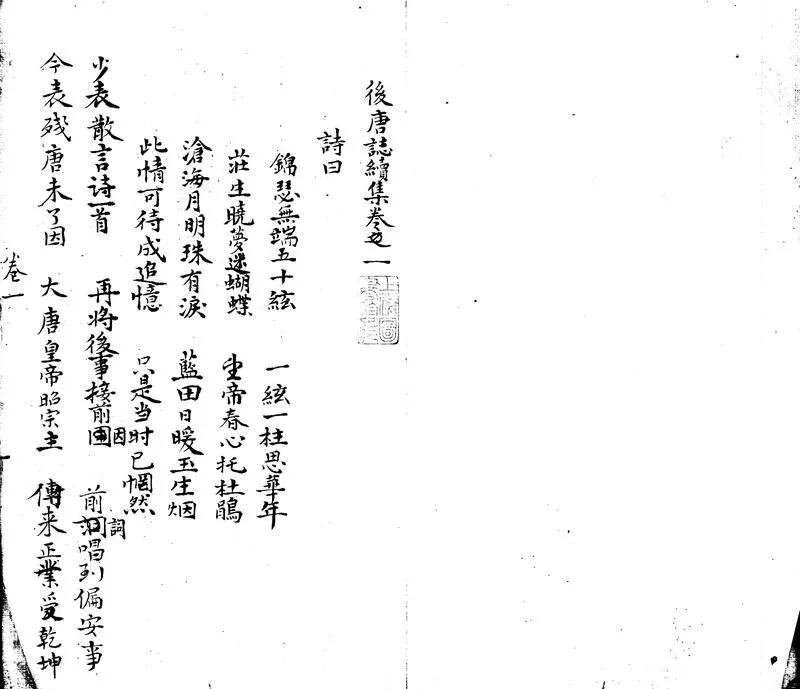 後唐誌續集卷之一
詩曰
錦瑟無端五十絃 一絃一柱思華年
莊生曉夢迷蝴蝶 望帝春心托杜鵑
滄海月明珠有淚 藍田日暖玉生烟
此情可待成追憶 只是当时已惘然
少表散言诗一首 再将後事接前因 前詞唱到偏安事
今表殘唐未了因 大唐皇帝昭宗主 傳来正業受乾坤
卷一